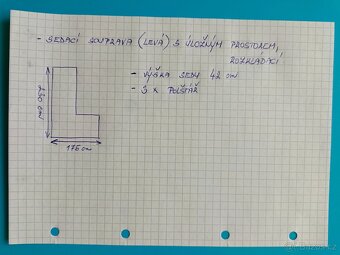 - SEDACÍ SOUPRAVA (LEVÁ) S ÚLOŽNÝM PROSTOREM,
ROZKLÁDACÍ,
- VÝŠKA SEDU 42 cm
- 3 x POLŠTÁŘ
cm
176 cm